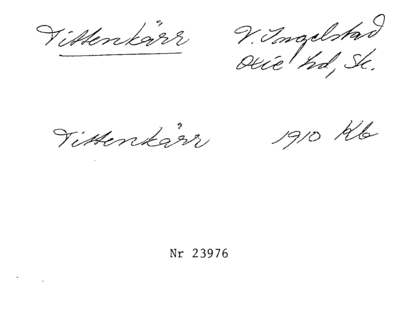 Tittenkärr V. Ingelstad
Oxie hd, Sk.
Tittenkärr 1910 Kb
Nr 23976